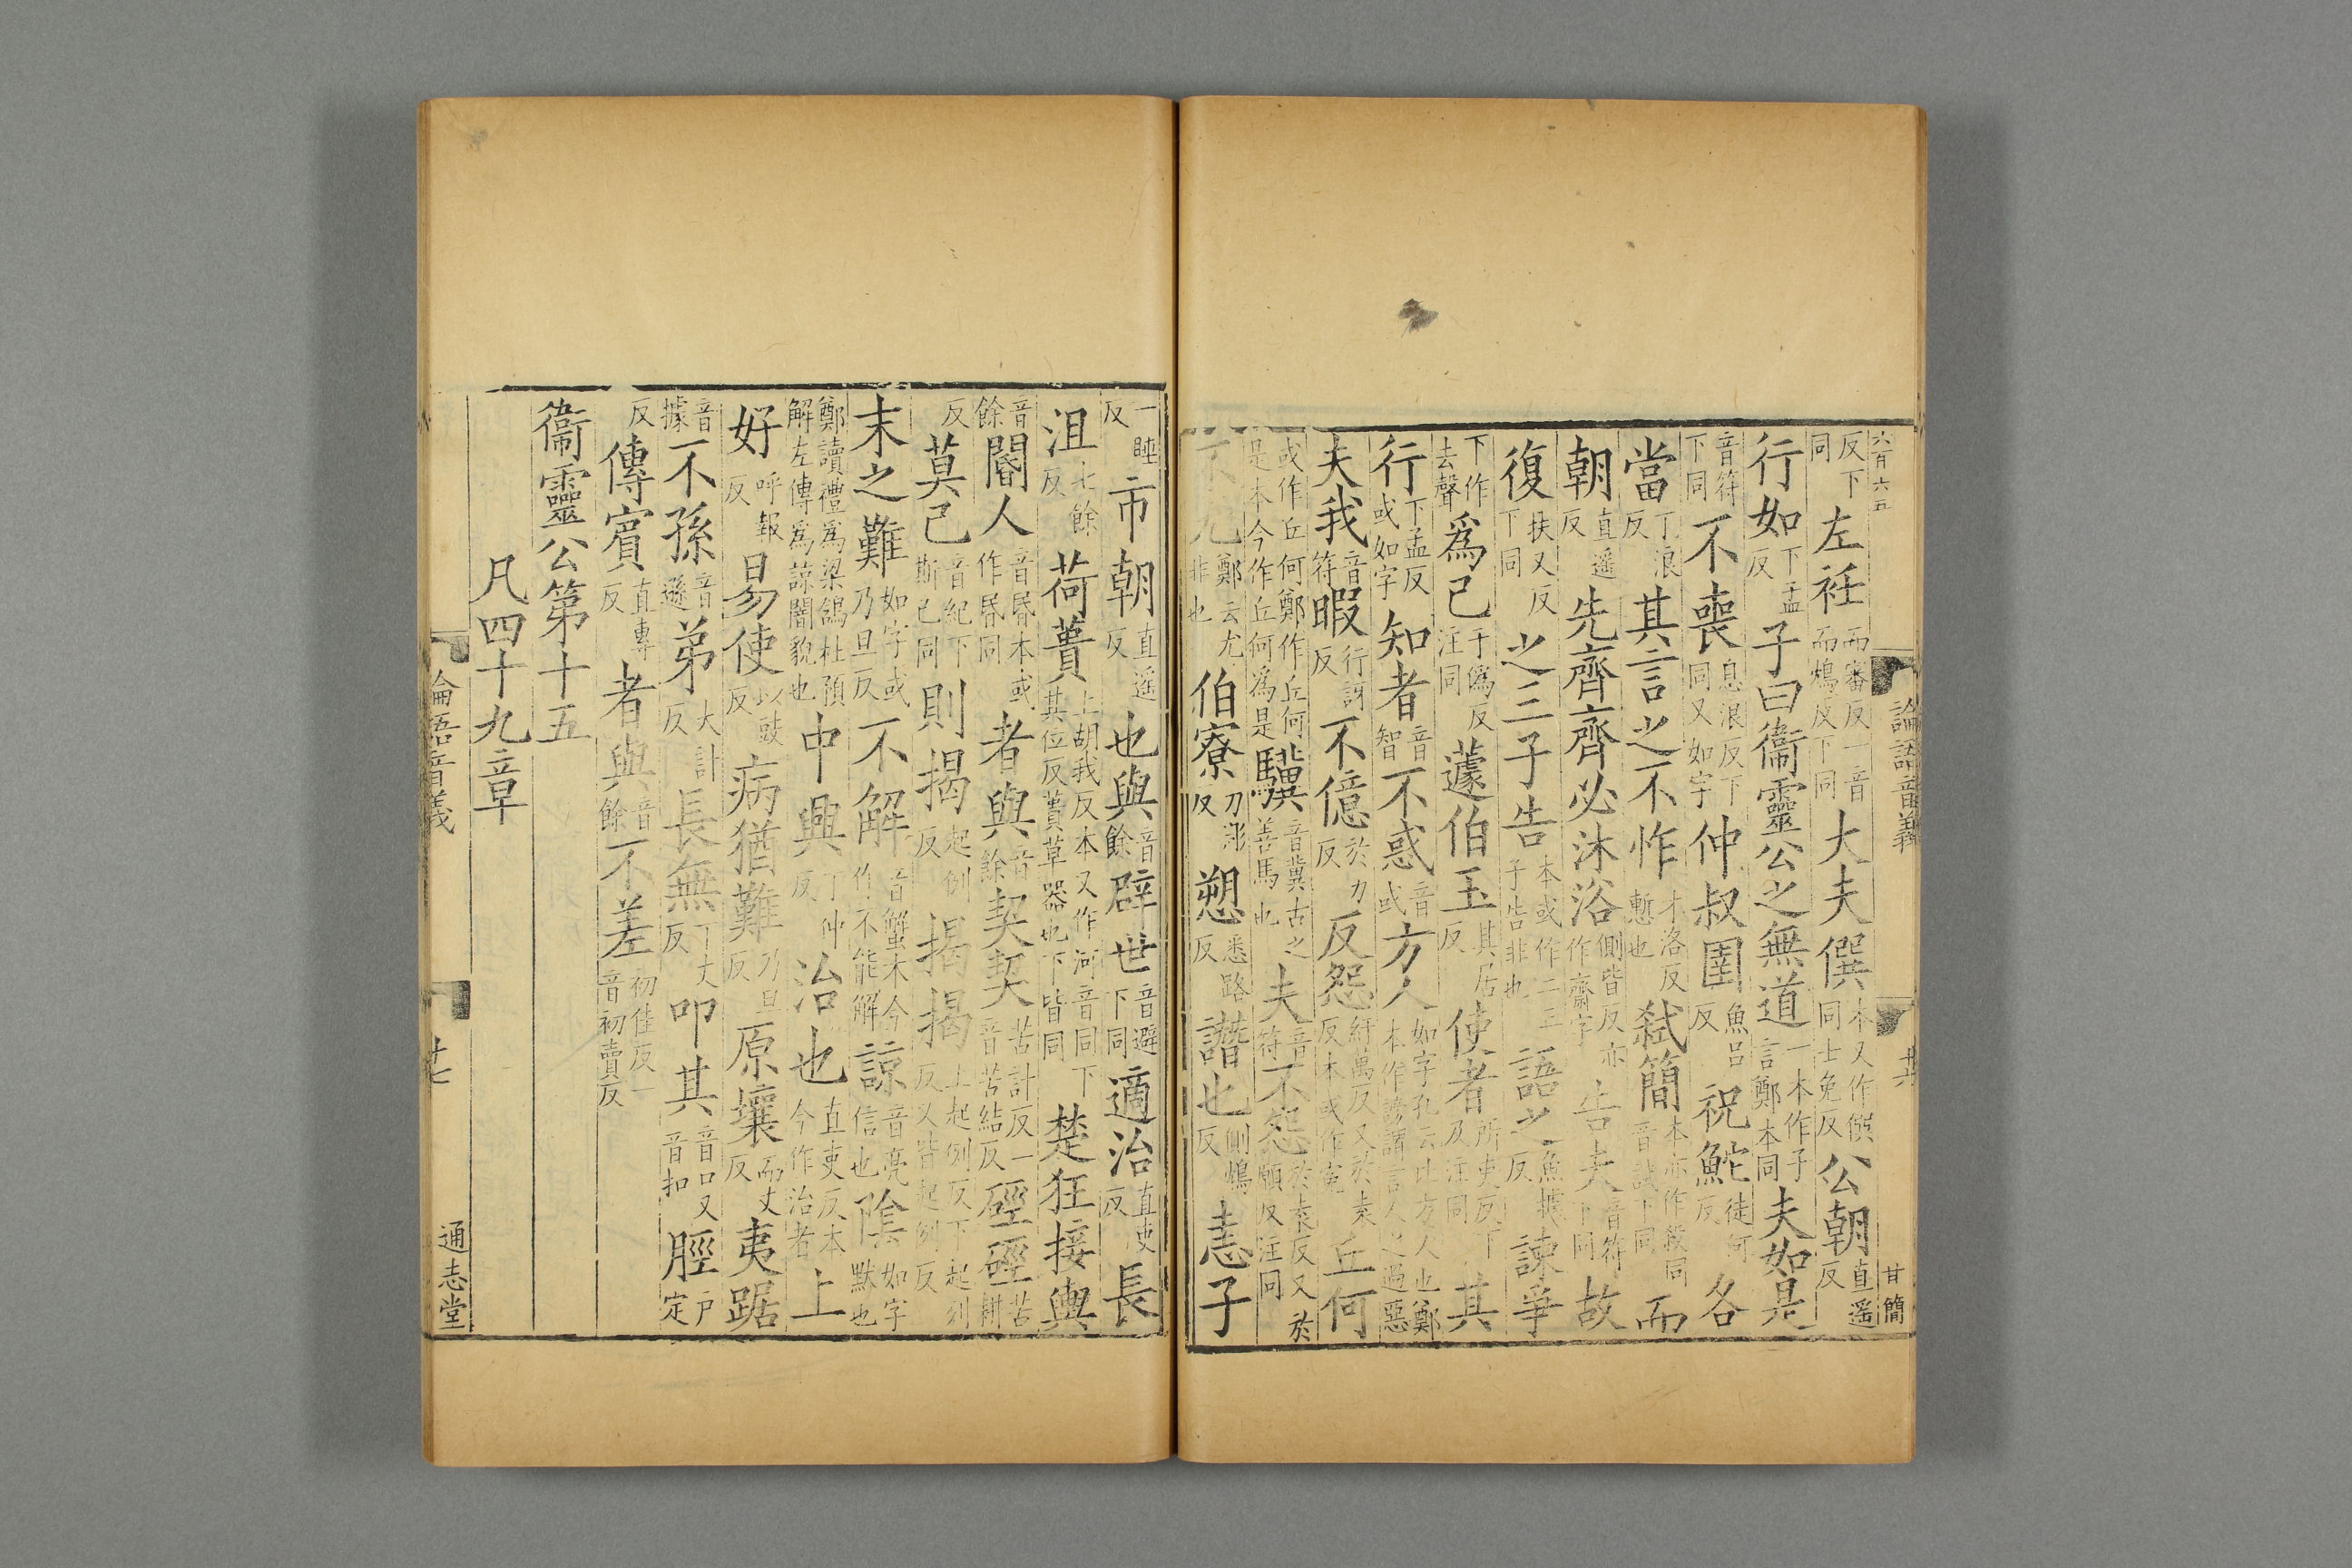 六百六五 論語音義 廿六 甘簡
反下同 左衽 而審反一音而鴆反下同 大夫僎 本又作僎同士免反 公朝 直遥反
行如 下孟反 子曰衞靈公之無道 一本作子言鄭本同 夫如是
音符下同 不喪 息浪反下同又如字 仲叔圉 魚吕反 祝鮀 徒何反 各
當 丁浪反 其言之不怍 才洛反慙也 弑簡 本亦作殺同音試下同 而
朝 直遥反 先齊齊必沐浴 側皆反亦作齋字 告夫 音符下同 故
復 扶又反下同 之三子告 本或作二三子告非也 語之 魚據反 諫爭
下作去聲 爲己 于僞反注同 蘧伯玉 其居反 使者 所吏反下及注同 其
行 下孟反或如字 知者 音智 不惑 音或 方人 如字孔云比方人也鄭本作謗謂言人之過惡
夫我 音符 暇 行訝反 不億 於力反 反怨 紆萬反又於袁反本或作冤 丘何
或作丘何鄭作丘何是本今作丘何爲是 驥 音冀古之善馬也 夫 音符 不怨 於袁反又於願反注同
不尤 鄭云尤非也 伯寮 力彫反 愬 悉路反 譖也 側鴆反 恚子
一睡反 市朝 直遥反 也與 音餘 辟世 音避下同 適治 直吏反 長
沮 七餘反 荷蕢 上胡我反本又作河音同下其位反蕢草器也下皆同 楚狂接輿
音餘 閽人 音昏本或作昬同 者與 音餘 契契 苦計反一音苦結反 硜硜 苦耕
反 莫己 音紀下斯己同 則揭 起例反 揭揭 上起例反下起列反又皆起例反
末之難 如字或乃旦反 不解 音蟹本今作不能解 諒 音亮信也 陰 如字默也
鄭讀禮爲梁鴿杜預解左傳爲諒闇貌也 中興 丁仲反 治也 直吏反本今作治者 上
好 呼報反 易使 以豉反 病猶難 乃旦反 原壤 而丈反 夷踞
音據 不孫 音遜 弟 大計反 長無 丁丈反 叩其 音口又音扣 脛 户定
反 傳賓 直專反 者與 音餘 不差 初佳反一音初賣反
衞靈公第十五
凡四十九章
論語音義 廿七 通志堂